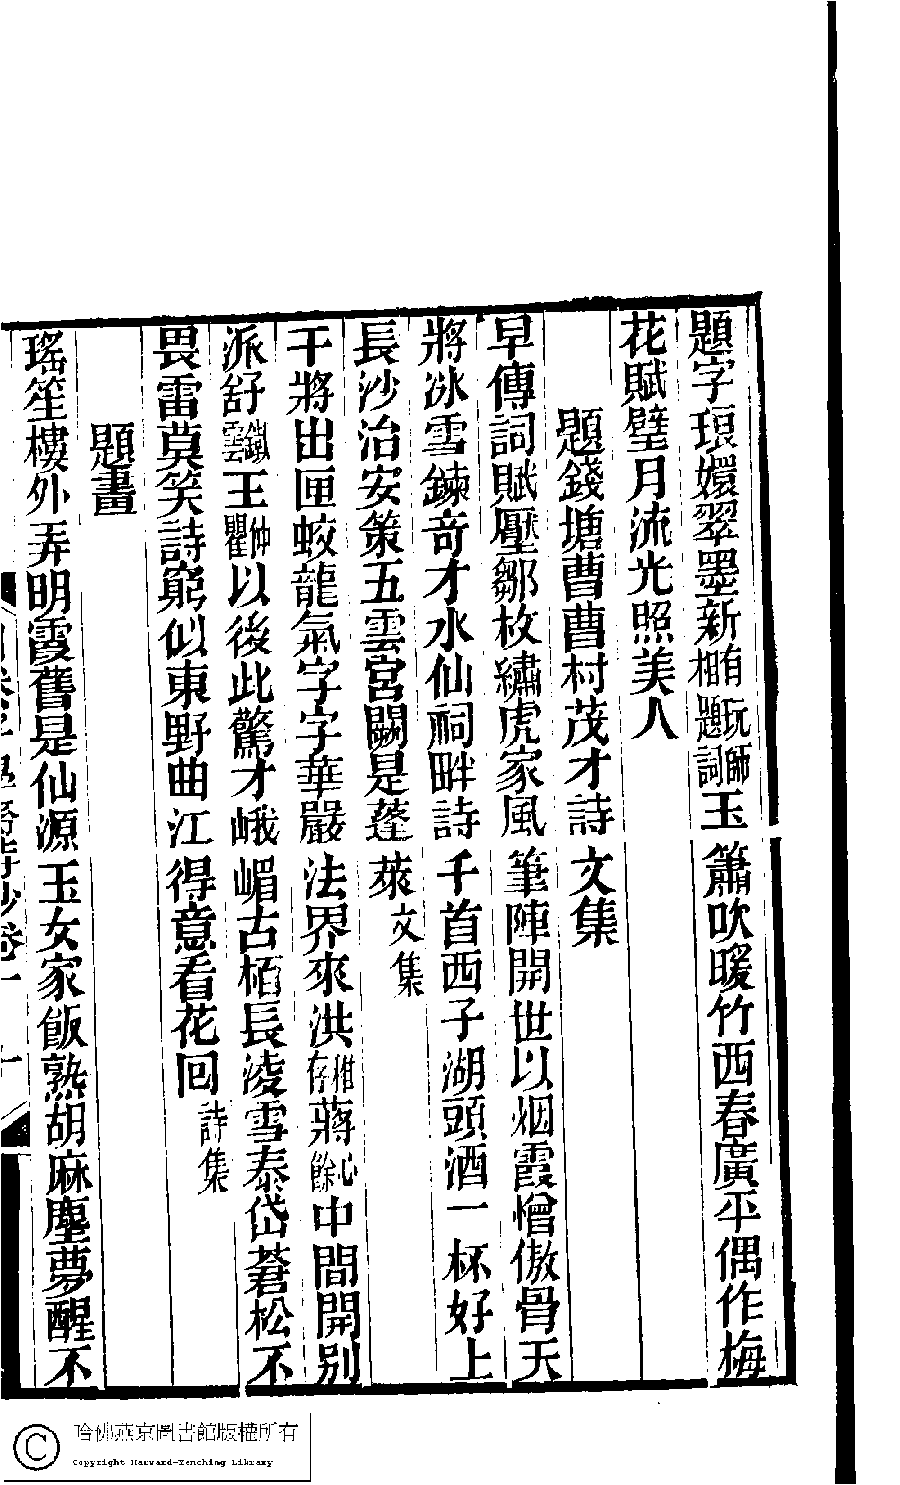 題字琅嬛翠墨新有玩師相題詞玉簫吹暖竹西春廣平偶作梅
花賦璧月流光照美人
題錢塘曹曹村茂才詩文集
早傳詞賦壓鄒枚繡虎家風筆陣開世以烟霞憎傲骨天
將冰雪鍊奇才水仙祠畔詩千首西子湖頭酒一杯好上
長沙治安策五雲宮闕是蓬萊文集
干將出匣蛟龍氣字字華嚴法界來洪稚存蔣心餘中間開別
派舒鐵雲王仲瞿以後此驚才峨嵋古栢長淩雪泰岱蒼松不
畏雷莫笑詩窮似東野曲江得意看花回詩集
題畫
瑤笙樓外弄明霞舊是仙源玉女家飯熟胡麻塵夢醒不
詩鈔卷一 十
哈佛燕京圖書館版權所有
Copyright Harvard-Yenching Library